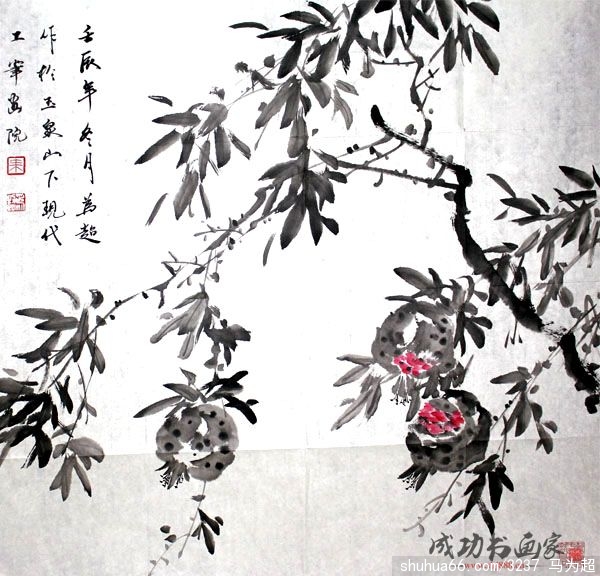 壬辰年冬月為超
作於玉泉山下現代
工筆畫院
成功书画家
shuhua66.com/3237 马为超